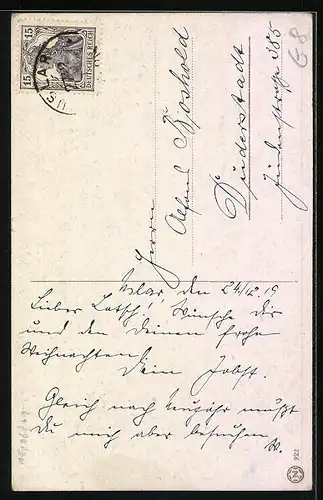 15 15
DEUTSCHES REICH
USLAR
68
Herrn
Alfons
Duderstadt
Jüdenstraße 385
Uslar, den 24/12.19
Lieber Latsch! Wünsche dir
und den Deinen frohe
Weihnachten!
Dein Jobst.
Gleich nach Neujahr mußt
du mich aber besuchen
W.
922
N